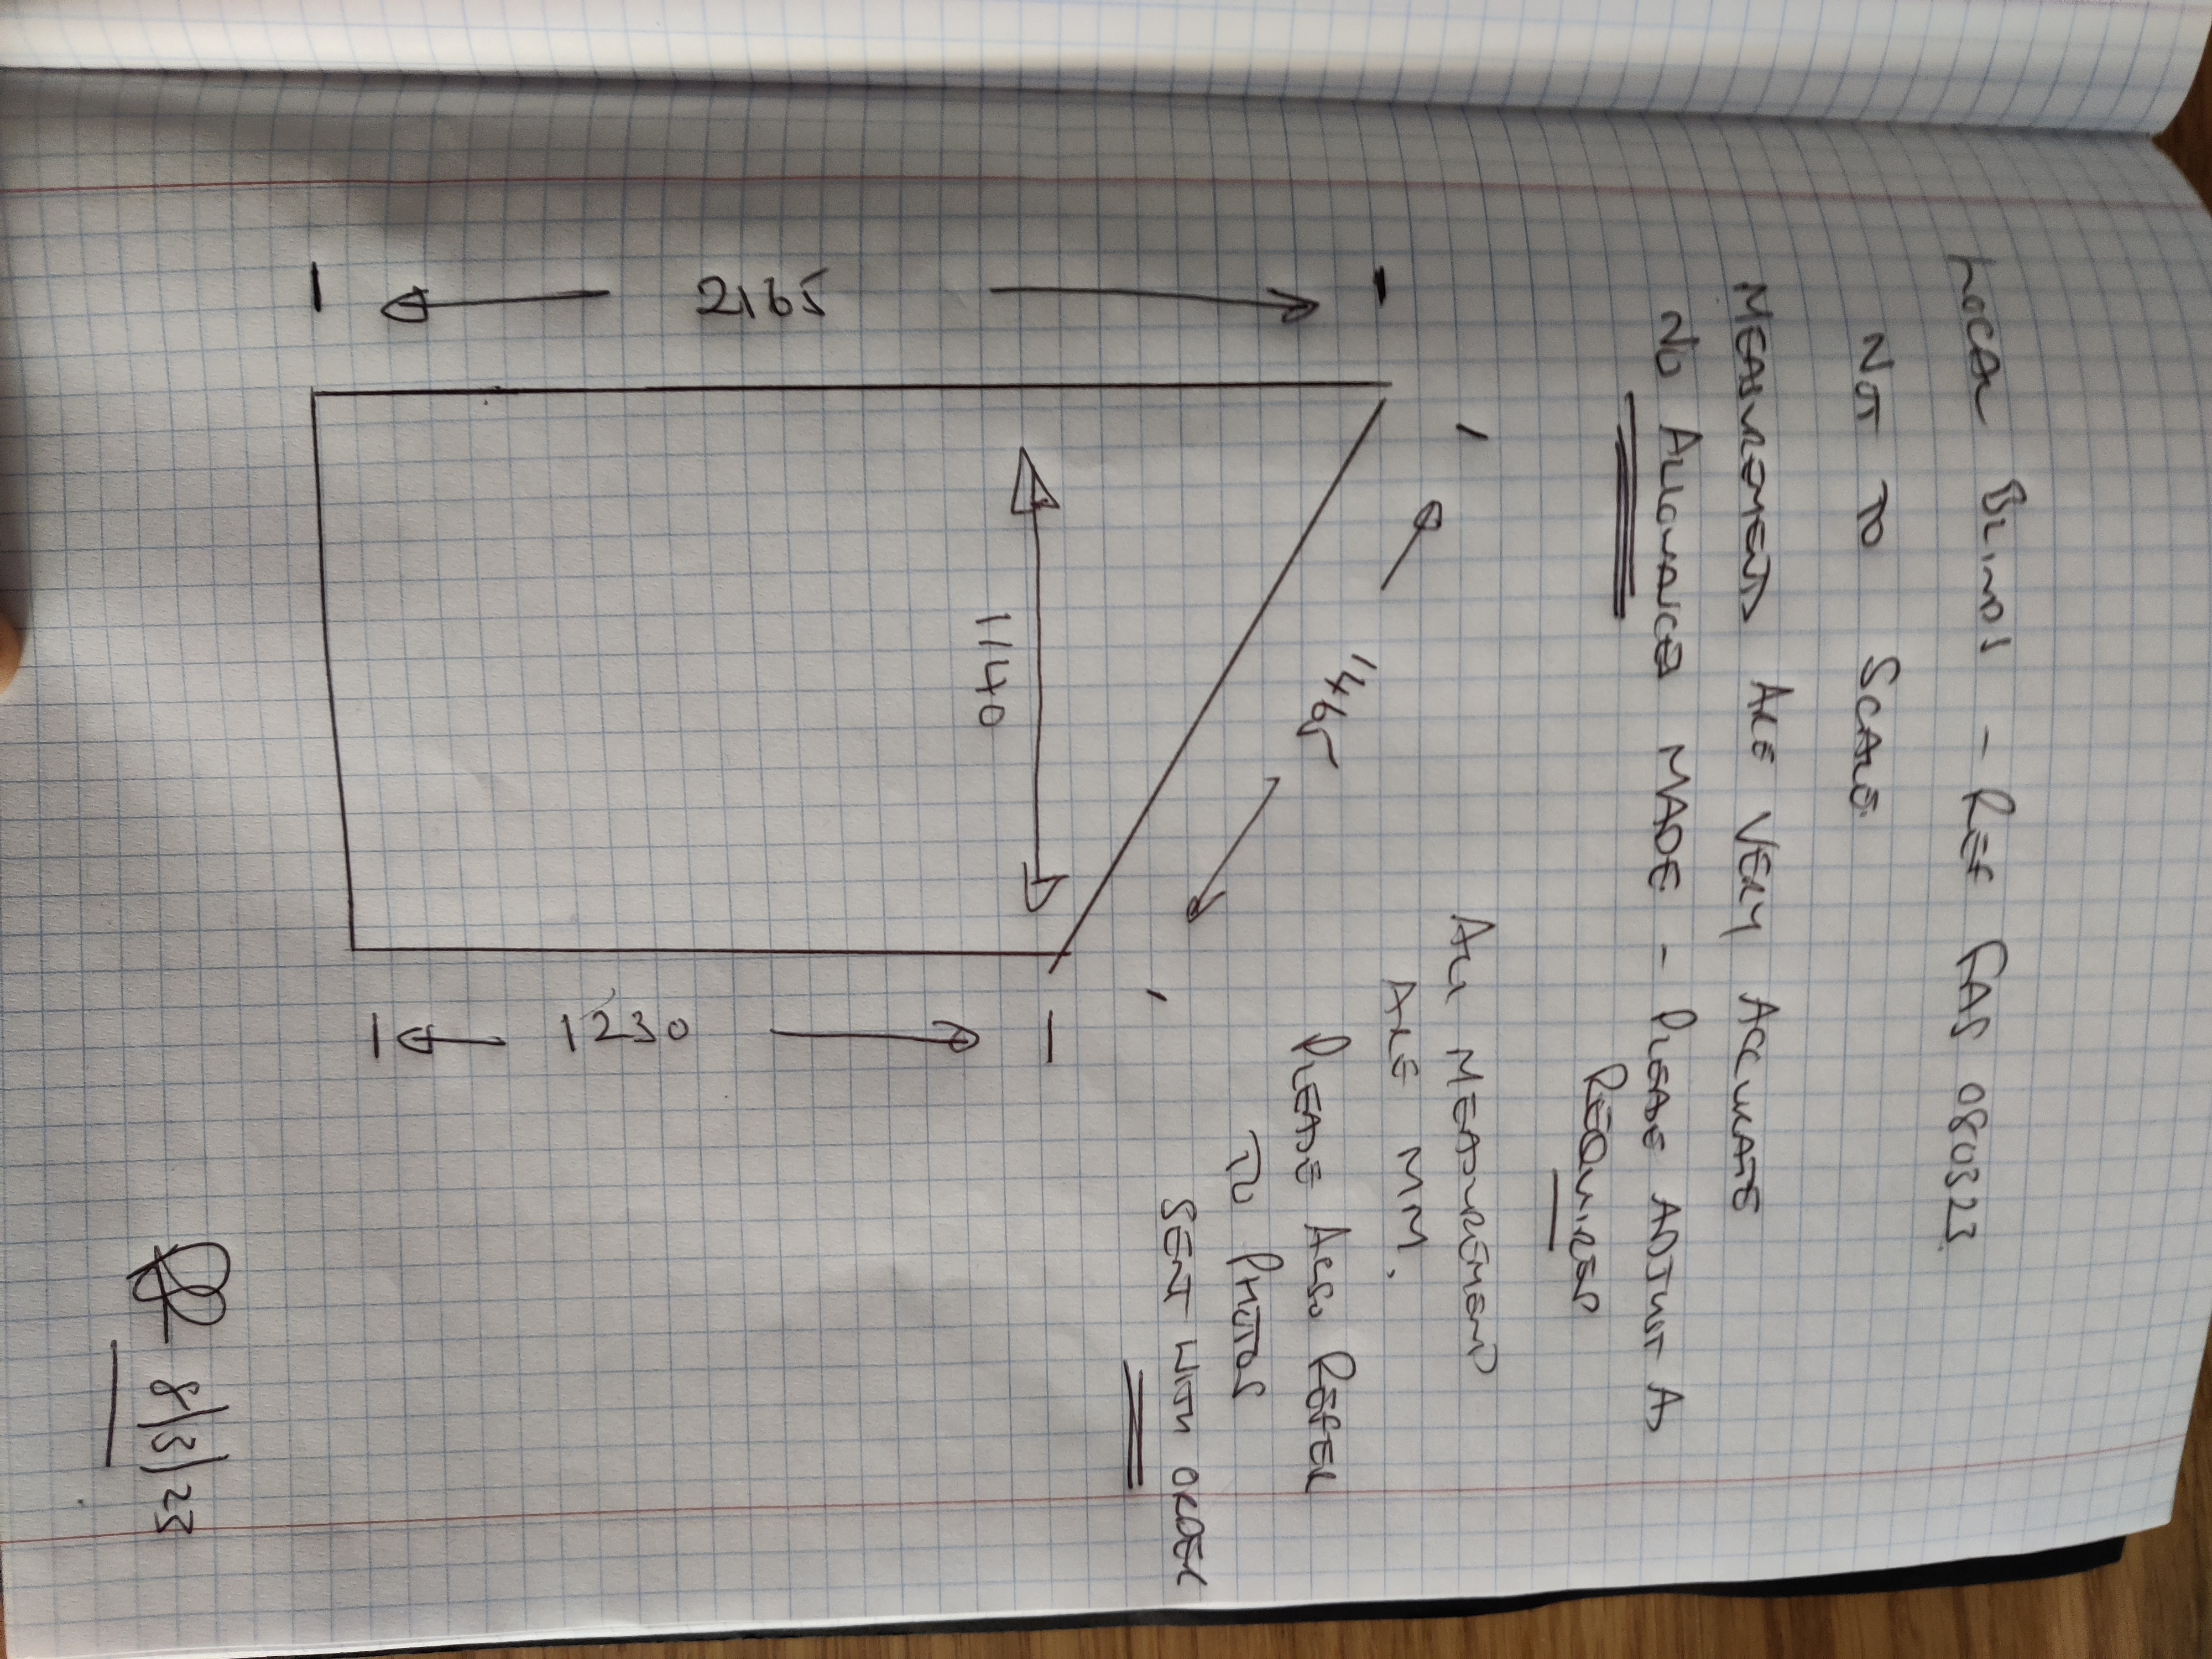 LOCAL BLINDS - REF FAS 080323
NOT TO SCALE
MEASUREMENTS ARE VERY ACCURATE
NO ALLOWANCES MADE - PLEASE ADJUST AS
REQUIRED
ALL MEASUREMENTS
ARE MM.
PLEASE ALSO REFER
TO PHOTOS
SENT WITH ORDER
1465
2165
1140
1230
8/3/23